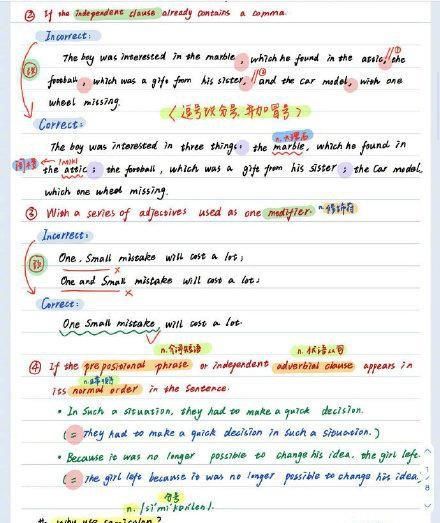 ② If the independent clause already contains a comma.
Incorrect:
The boy was interested in the marble, which he found in the attic, the ①
football, which was a gift from his sister, ② and the car model, with one
wheel missing.
〈逗号改分号, 并加冒号〉
Correct:
n.大理石
The boy was interested in three things: the marble, which he found in
阁楼 ← /ˈætɪk/ the attic; the football, which was a gift from his sister; the Car model,
which one wheel missing.
③ With a series of adjectives used as one modifier. n.修饰符
Incorrect:
One, Small mistake will cost a lot;
One and Small mistake will cost a lot;
Correct:
One Small mistake will cost a lot.
n.介词短语 n.状语从句
④ If the prepositional phrase or independent adverbial clause appears in
its normal order in the Sentence.
• In Such a situation, they had to make a quick decision.
(= They had to make a quick decision in Such a Situation.)
• Because it was no longer possible to change his idea, the girl left.
(= The girl left because it was no longer possible to change his idea.
分号
n. /ˈsemiˈkəʊlən/.
# Why use semicolon?